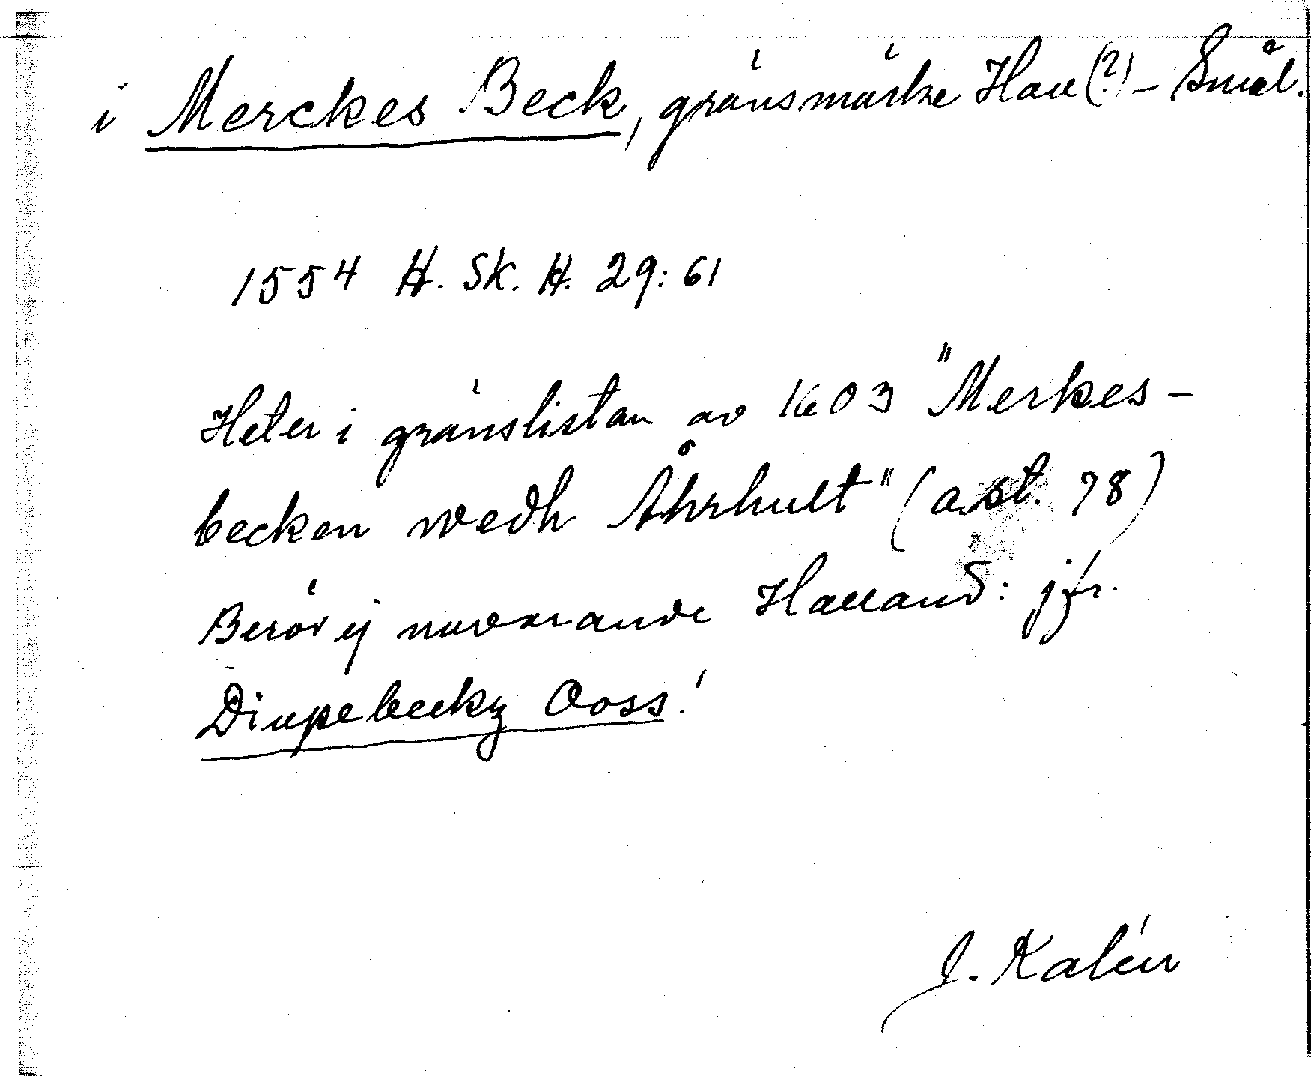 i Merckes Beck, gränsmärke Hall(?) – Smål.
1554 H. Sk. H. 29:61
Heter i gränslistan av 1603 "Merkes-
becken wedh Åhrhult" (a.st. 78)
Berör ej nuvarande Halland: jfr.
Diupebecky Ooss!
J. Kalén